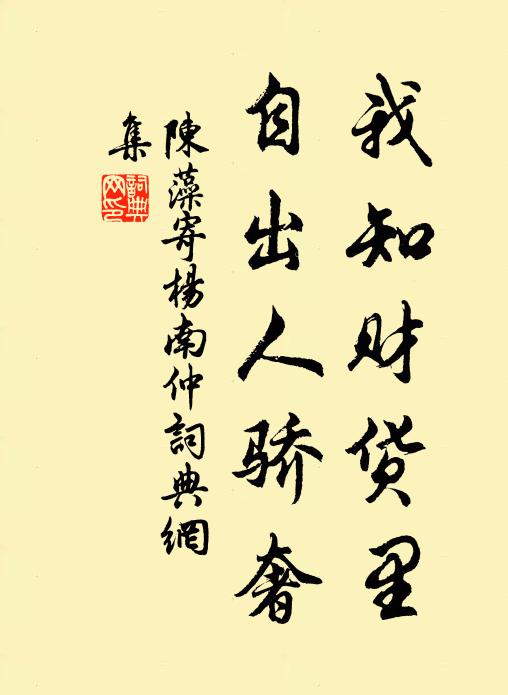 我知财货里
自出人骄奢
陳藻寄楊南仲詞典網
集
詞典
网印